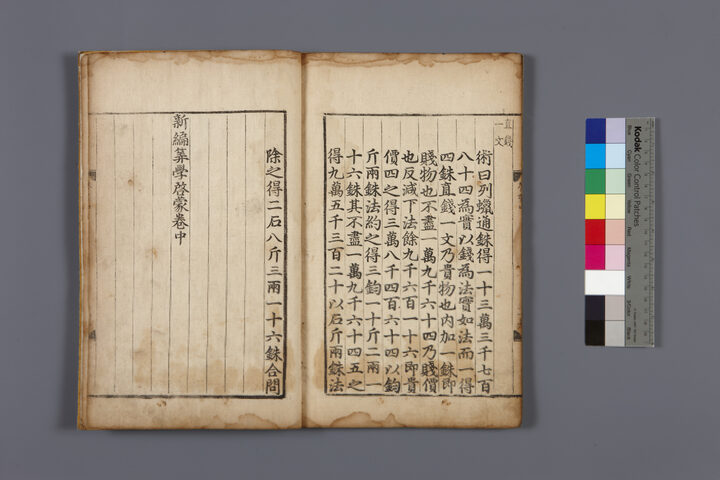 直錢
一文
術曰列蠟通銖得一十三萬三千七百
八十四爲實以錢爲法實如法而一得
四銖直錢一文乃貴物也内加一銖即
賤物也不盡一萬九千六十四乃賤價
也反减下法餘九千六百一十六即貴
價四之得三萬八千四百六十四以鈞
斤兩銖法約之得三鈞一十斤二兩一
十六銖其不盡一萬九千六十四五之
得九萬五千三百二十以石斤兩銖法
除之得二石八斤三兩一十六銖合問
新編算學啓蒙卷中
Kodak Color Control Patches
Blue
Cyan
Green
Yellow
Red
Magenta
White
3/Color
Black